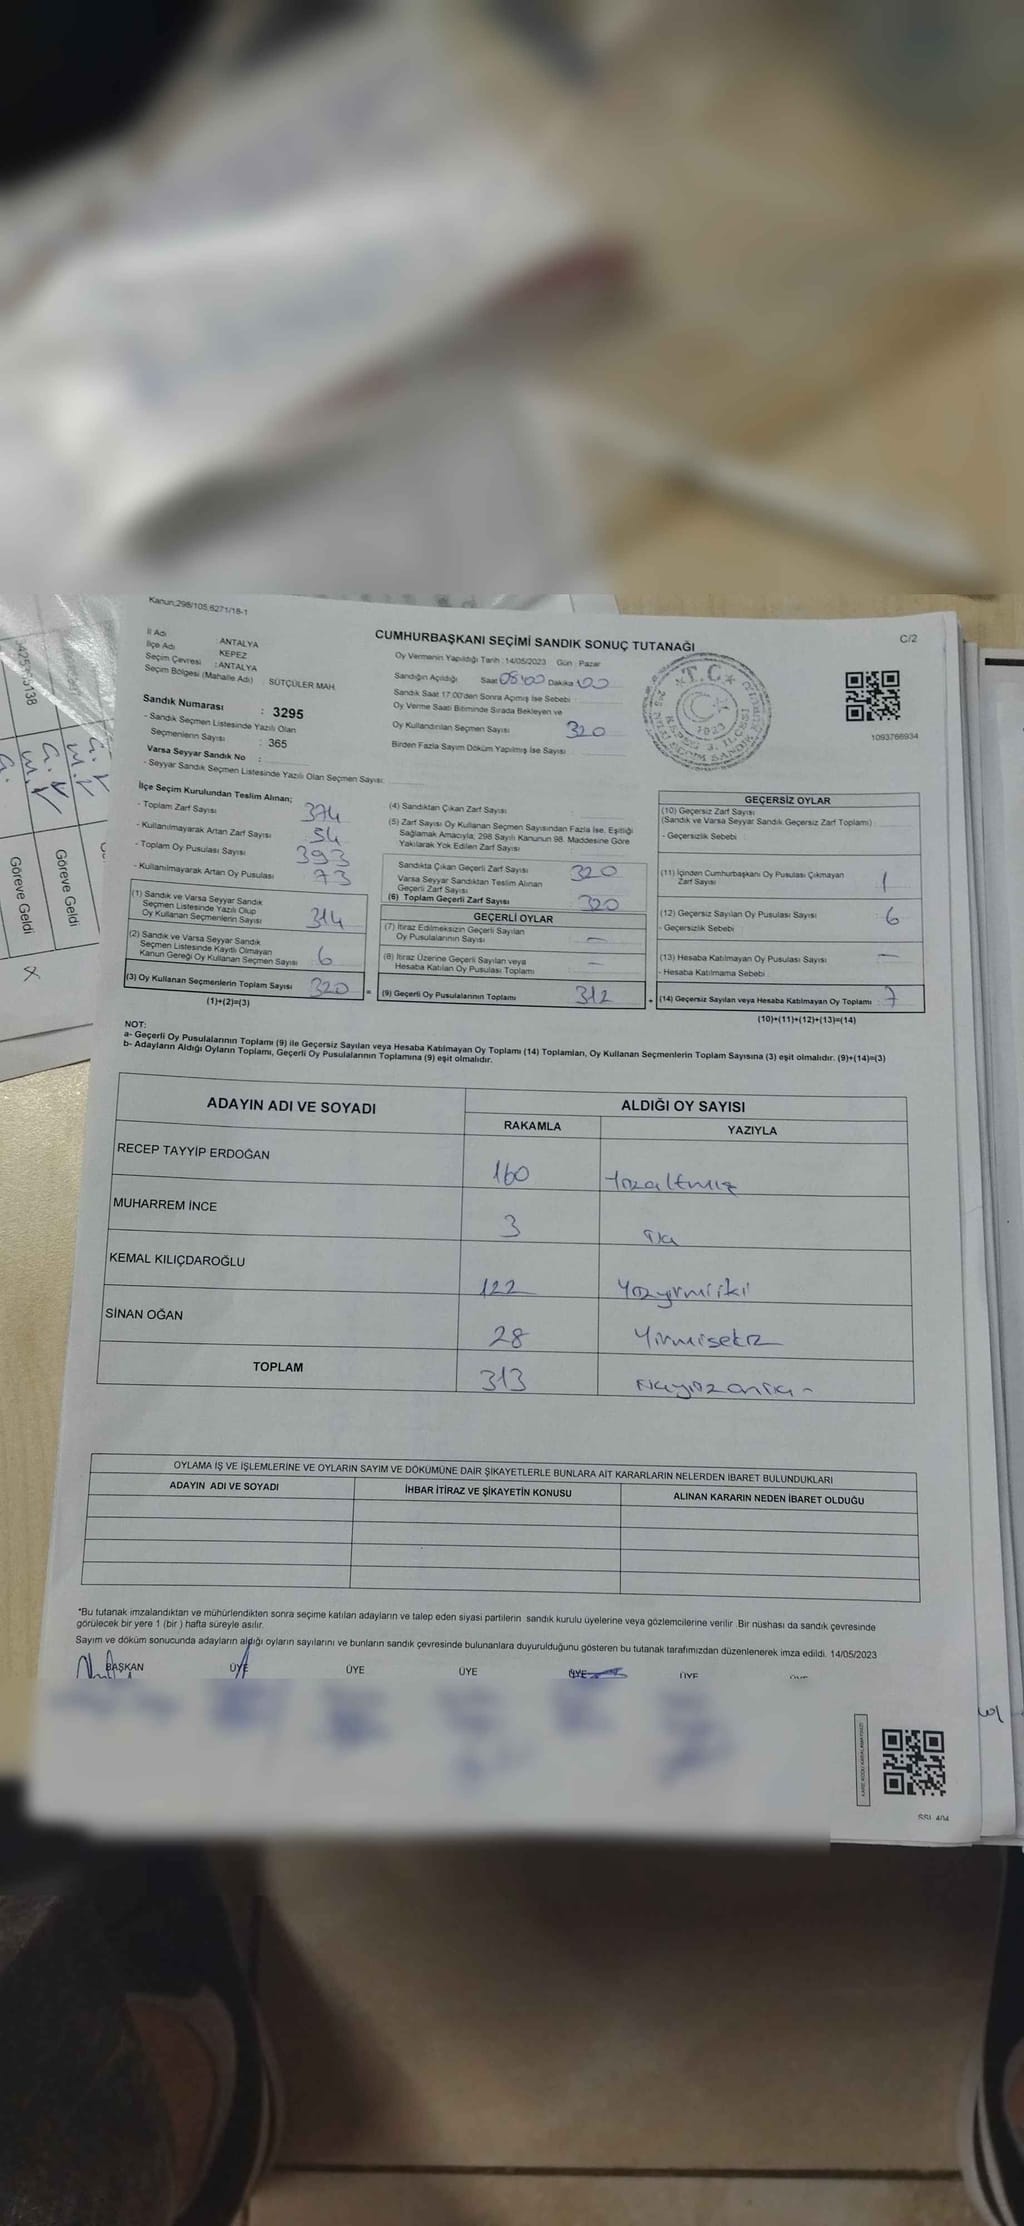 Kanun;298/105,6271/18-1
C/2
CUMHURBAŞKANI SEÇİMİ SANDIK SONUÇ TUTANAĞI
İl Adı : ANTALYA
İlçe Adı : KEPEZ
Seçim Çevresi : ANTALYA
Seçim Bölgesi (Mahalle Adı) SÜTÇÜLER MAH.
Sandık Numarası : 3295
- Sandık Seçmen Listesinde Yazılı Olan
Seçmenlerin Sayısı : 365
Varsa Seyyar Sandık No :
- Seyyar Sandık Seçmen Listesinde Yazılı Olan Seçmen Sayısı:
Oy Vermenin Yapıldığı Tarih : 14/05/2023 Gün : Pazar
Sandığın Açıldığı Saat 08:00 Dakika 00
Sandık Saat 17:00'den Sonra Açımış İse Sebebi :
Oy Verme Saati Bitiminde Sırada Bekleyen ve
Oy Kullandırılan Seçmen Sayısı 320
Birden Fazla Sayım Döküm Yapılmış İse Sayısı
T.C.
1923
1093766934
İlçe Seçim Kurulundan Teslim Alınan;
- Toplam Zarf Sayısı 374
- Kullanılmayarak Artan Zarf Sayısı 54
- Toplam Oy Pusulası Sayısı 393
- Kullanılmayarak Artan Oy Pusulası 73
(1) Sandık ve Varsa Seyyar Sandık
Seçmen Listesinde Yazılı Olup
Oy Kullanan Seçmenlerin Sayısı 314
(2) Sandık ve Varsa Seyyar Sandık
Seçmen Listesinde Kayıtlı Olmayan
Kanun Gereği Oy Kullanan Seçmen Sayısı 6
(3) Oy Kullanan Seçmenlerin Toplam Sayısı 320
(1)+(2)=(3)
(4) Sandıktan Çıkan Zarf Sayısı
(5) Zarf Sayısı Oy Kullanan Seçmen Sayısından Fazla İse, Eşitliği
Sağlamak Amacıyla; 298 Sayılı Kanunun 98. Maddesine Göre
Yakılarak Yok Edilen Zarf Sayısı
Sandıkta Çıkan Geçerli Zarf Sayısı 320
Varsa Seyyar Sandıktan Teslim Alınan
Geçerli Zarf Sayısı
(6) Toplam Geçerli Zarf Sayısı 320
GEÇERLİ OYLAR
(7) İtiraz Edilmeksizin Geçerli Sayılan
Oy Pusulalarının Sayısı –
(8) İtiraz Üzerine Geçerli Sayılan veya
Hesaba Katılan Oy Pusulası Toplamı –
= (9) Geçerli Oy Pusulalarının Toplamı 312
GEÇERSİZ OYLAR
(10) Geçersiz Zarf Sayısı
(Sandık ve Varsa Seyyar Sandık Geçersiz Zarf Toplamı)
- Geçersizlik Sebebi :
(11) İçinden Cumhurbaşkanı Oy Pusulası Çıkmayan
Zarf Sayısı 1
(12) Geçersiz Sayılan Oy Pusulası Sayısı 6
- Geçersizlik Sebebi :
(13) Hesaba Katılmayan Oy Pusulası Sayısı –
- Hesaba Katılmama Sebebi :
+ (14) Geçersiz Sayılan veya Hesaba Katılmayan Oy Toplamı : 7
(10)+(11)+(12)+(13)=(14)
NOT:
a- Geçerli Oy Pusulalarının Toplamı (9) ile Geçersiz Sayılan veya Hesaba Katılmayan Oy Toplamı (14) Toplamları, Oy Kullanan Seçmenlerin Toplam Sayısına (3) eşit olmalıdır. (9)+(14)=(3)
b- Adayların Aldığı Oyların Toplamı, Geçerli Oy Pusulalarının Toplamına (9) eşit olmalıdır.
ADAYIN ADI VE SOYADI
ALDIĞI OY SAYISI
RAKAMLA YAZIYLA
RECEP TAYYİP ERDOĞAN 160 Yüzaltmış
MUHARREM İNCE 3 Üç
KEMAL KILIÇDAROĞLU 122 Yüzyirmiiki
SİNAN OĞAN 28 Yirmisekiz
TOPLAM 313 Üçyüzonüç -
OYLAMA İŞ VE İŞLEMLERİNE VE OYLARIN SAYIM VE DÖKÜMÜNE DAİR ŞİKAYETLERLE BUNLARA AİT KARARLARIN NELERDEN İBARET BULUNDUKLARI
ADAYIN ADI VE SOYADI İHBAR İTİRAZ VE ŞİKAYETİN KONUSU ALINAN KARARIN NEDEN İBARET OLDUĞU
*Bu tutanak imzalandıktan ve mühürlendikten sonra seçime katılan adayların ve talep eden siyasi partilerin sandık kurulu üyelerine veya gözlemcilerine verilir. Bir nüshası da sandık çevresinde
görülecek bir yere 1 (bir ) hafta süreyle asılır.
Sayım ve döküm sonucunda adayların aldığı oyların sayılarını ve bunların sandık çevresinde bulunanlara duyurulduğunu gösteren bu tutanak tarafımızdan düzenlenerek imza edildi. 14/05/2023
BAŞKAN ÜYE ÜYE ÜYE ÜYE ÜYE
Göreve Geldi
Göreve Geldi